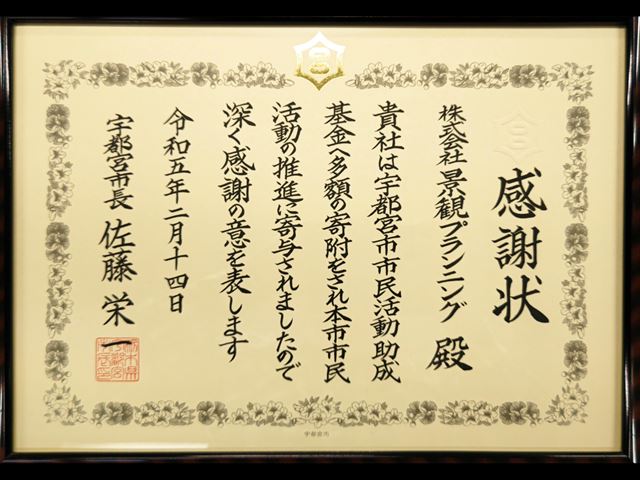 感謝状
株式会社 景観プランニング 殿
貴社は宇都宮市市民活動助成
基金へ多額の寄附をされ本市市民
活動の推進に寄与されましたので
深く感謝の意を表します
令和五年二月十四日
宇都宮市長 佐藤 栄一
宇都宮市